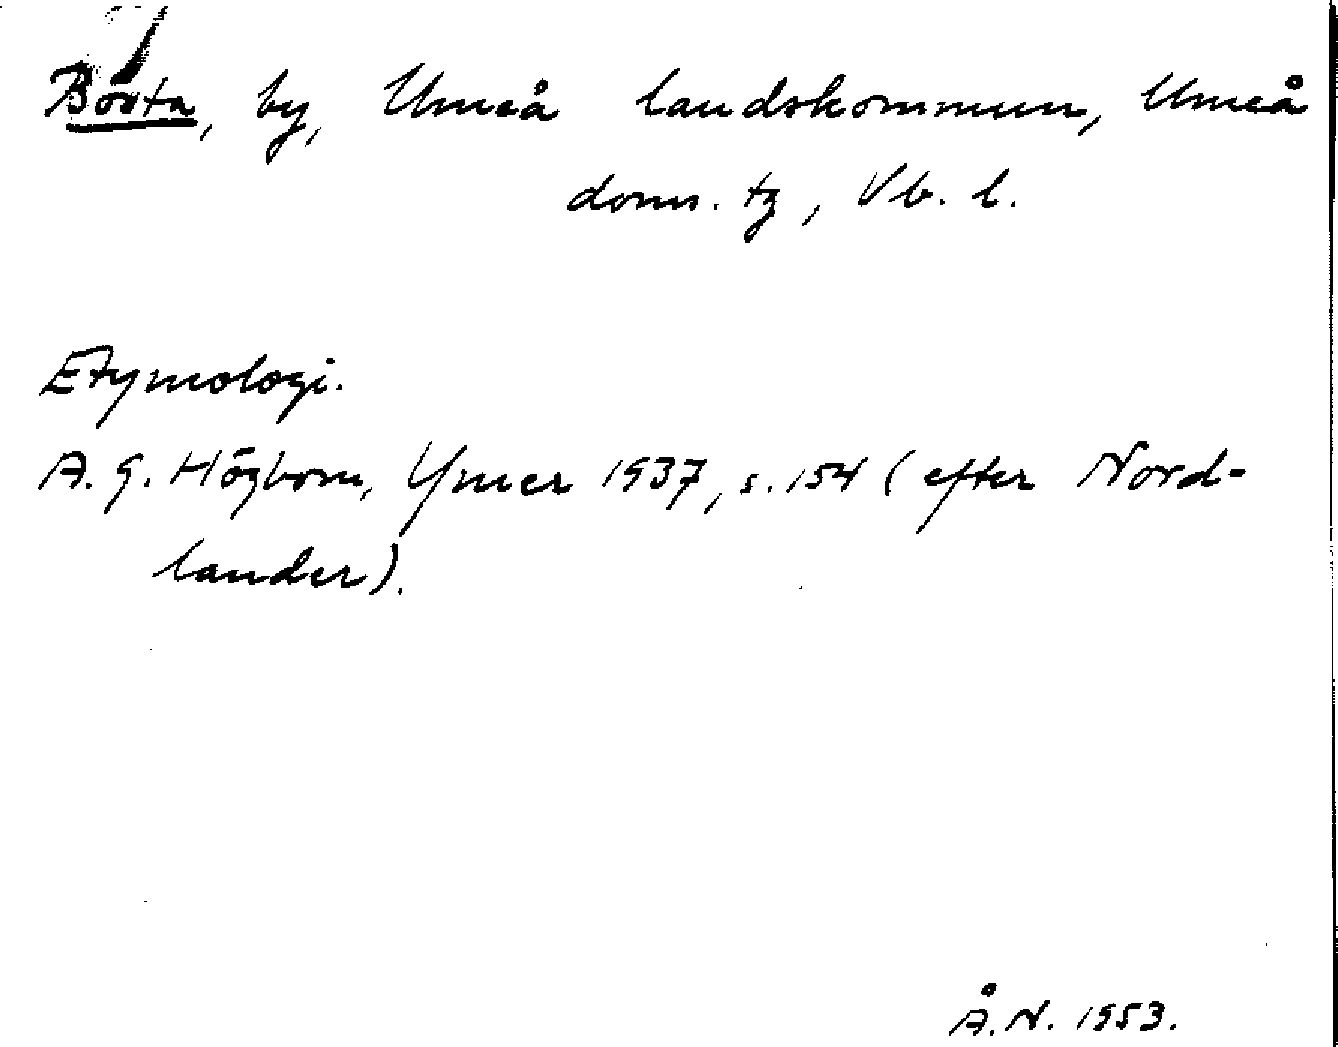 Bösta, by, Umeå landskommun, Umeå
doms. tg, Vb. l.
Etymologi.
A. G. Högbom, Ymer 1937, s. 154 (efter Nord-
lander).
Å. N. 1953.